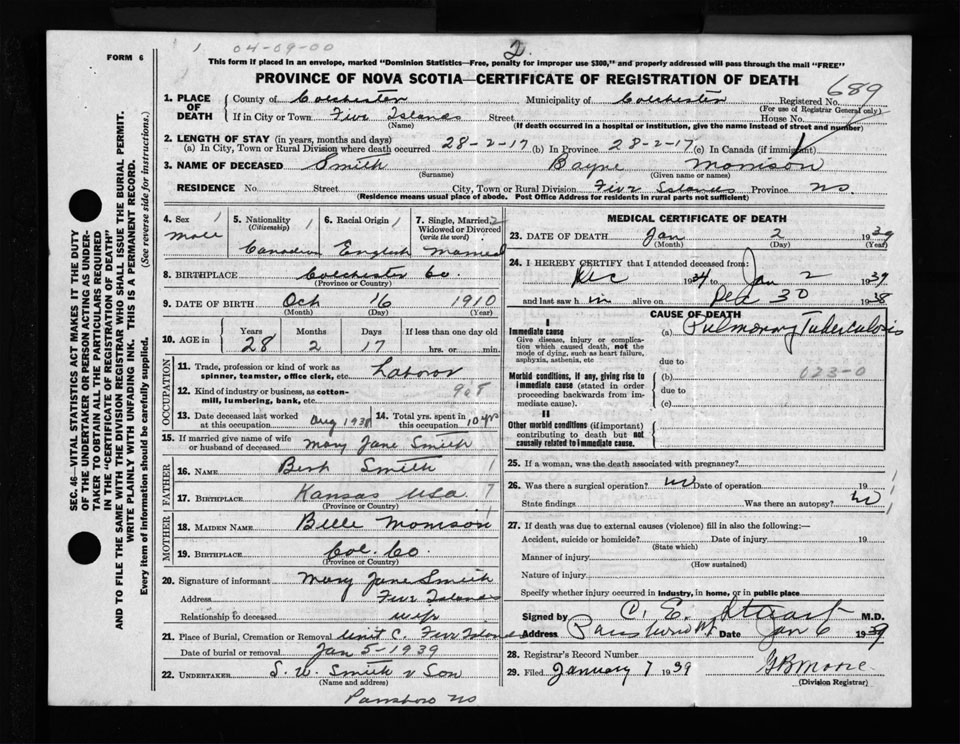 1 04-09-00
2.
FORM 6
This form if placed in an envelope, marked "Dominion Statistics—Free, penalty for improper use $300," and properly addressed will pass through the mail "FREE"
PROVINCE OF NOVA SCOTIA—CERTIFICATE OF REGISTRATION OF DEATH
689
1. PLACE OF DEATH County of Colchester Municipality of Colchester Registered No.
(For use of Registrar General only)
If in City or Town Five Islands Street House No.
(Name) (If death occurred in a hospital or institution, give the name instead of street and number)
2. LENGTH OF STAY (in years, months and days)
(a) In City, Town or Rural Division where death occurred 28-2-17 (b) In Province 28-2-17 (c) In Canada (if immigrant)
3. NAME OF DECEASED Smith Bayne Morrison
(Surname) (Given name or names)
RESIDENCE No. Street City, Town or Rural Division Five Islands Province NS.
(Residence means usual place of abode. Post Office Address for residents in rural parts not sufficient)
4. Sex 1 Male
5. Nationality (Citizenship) 1 Canadian
6. Racial Origin 1 English
7. Single, Married, Widowed or Divorced (write the word) 2 Married
8. BIRTHPLACE Colchester Co.
(Province or Country)
9. DATE OF BIRTH Oct 16 1910
(Month) (Day) (Year)
10. AGE in Years Months Days If less than one day old
28 2 17 hrs. or min.
OCCUPATION
11. Trade, profession or kind of work as spinner, teamster, office clerk, etc. Laborer
12. Kind of industry or business, as cotton-mill, lumbering, bank, etc. 968
13. Date deceased last worked at this occupation Aug 1938 14. Total yrs. spent in this occupation 10 yrs
15. If married give name of wife or husband of deceased Mary Jane Smith
FATHER
16. NAME Bert Smith 1
17. BIRTHPLACE Kansas USA 7
(Province or Country)
MOTHER
18. MAIDEN NAME Belle Morrison
19. BIRTHPLACE Col. Co.
(Province or Country)
20. Signature of informant Mary Jane Smith
Address Five Islands
Relationship to deceased wife
21. Place of Burial, Cremation or Removal Unit C. Five Islands
Date of burial or removal Jan 5-1939
22. UNDERTAKER S. W. Smith & Son
(Name and address)
Parrsboro NS
MEDICAL CERTIFICATE OF DEATH
23. DATE OF DEATH Jan 2 1939
(Month) (Day) (Year)
24. I HEREBY CERTIFY that I attended deceased from:
Dec 1934 to Jan 2 1939
and last saw him alive on Dec 30 1938
CAUSE OF DEATH
I
Immediate cause
Give disease, injury or complication which caused death, not the mode of dying, such as heart failure, asphyxia, asthenia, etc
(a) Pulmonary Tuberculosis
due to
Morbid conditions, if any, giving rise to immediate cause (stated in order proceeding backwards from immediate cause).
(b) 023-0
due to
(c)
II
Other morbid conditions (if important) contributing to death but not causally related to immediate cause.
25. If a woman, was the death associated with pregnancy?
26. Was there a surgical operation? No Date of operation 19 1
State findings Was there an autopsy? No 1
27. If death was due to external causes (violence) fill in also the following:—
Accident, suicide or homicide? Date of injury 19
(State which)
Manner of injury
(How sustained)
Nature of injury
Specify whether injury occurred in industry, in home, or in public place
Signed by C. E. Stuart M.D.
Address Parrsboro NS. Date Jan 6 1939
28. Registrar's Record Number
29. Filed January 7 1939 G B Moore
(Division Registrar)
SEC. 46—VITAL STATISTICS ACT MAKES IT THE DUTY
OF THE UNDERTAKER OR PERSON ACTING AS UNDERTAKER TO OBTAIN ALL THE PARTICULARS REQUIRED
IN THE "CERTIFICATE OF REGISTRATION OF DEATH"
AND TO FILE THE SAME WITH THE DIVISION REGISTRAR WHO SHALL ISSUE THE BURIAL PERMIT.
WRITE PLAINLY WITH UNFADING INK. THIS IS A PERMANENT RECORD.
Every item of information should be carefully supplied. (See reverse side for instructions.)